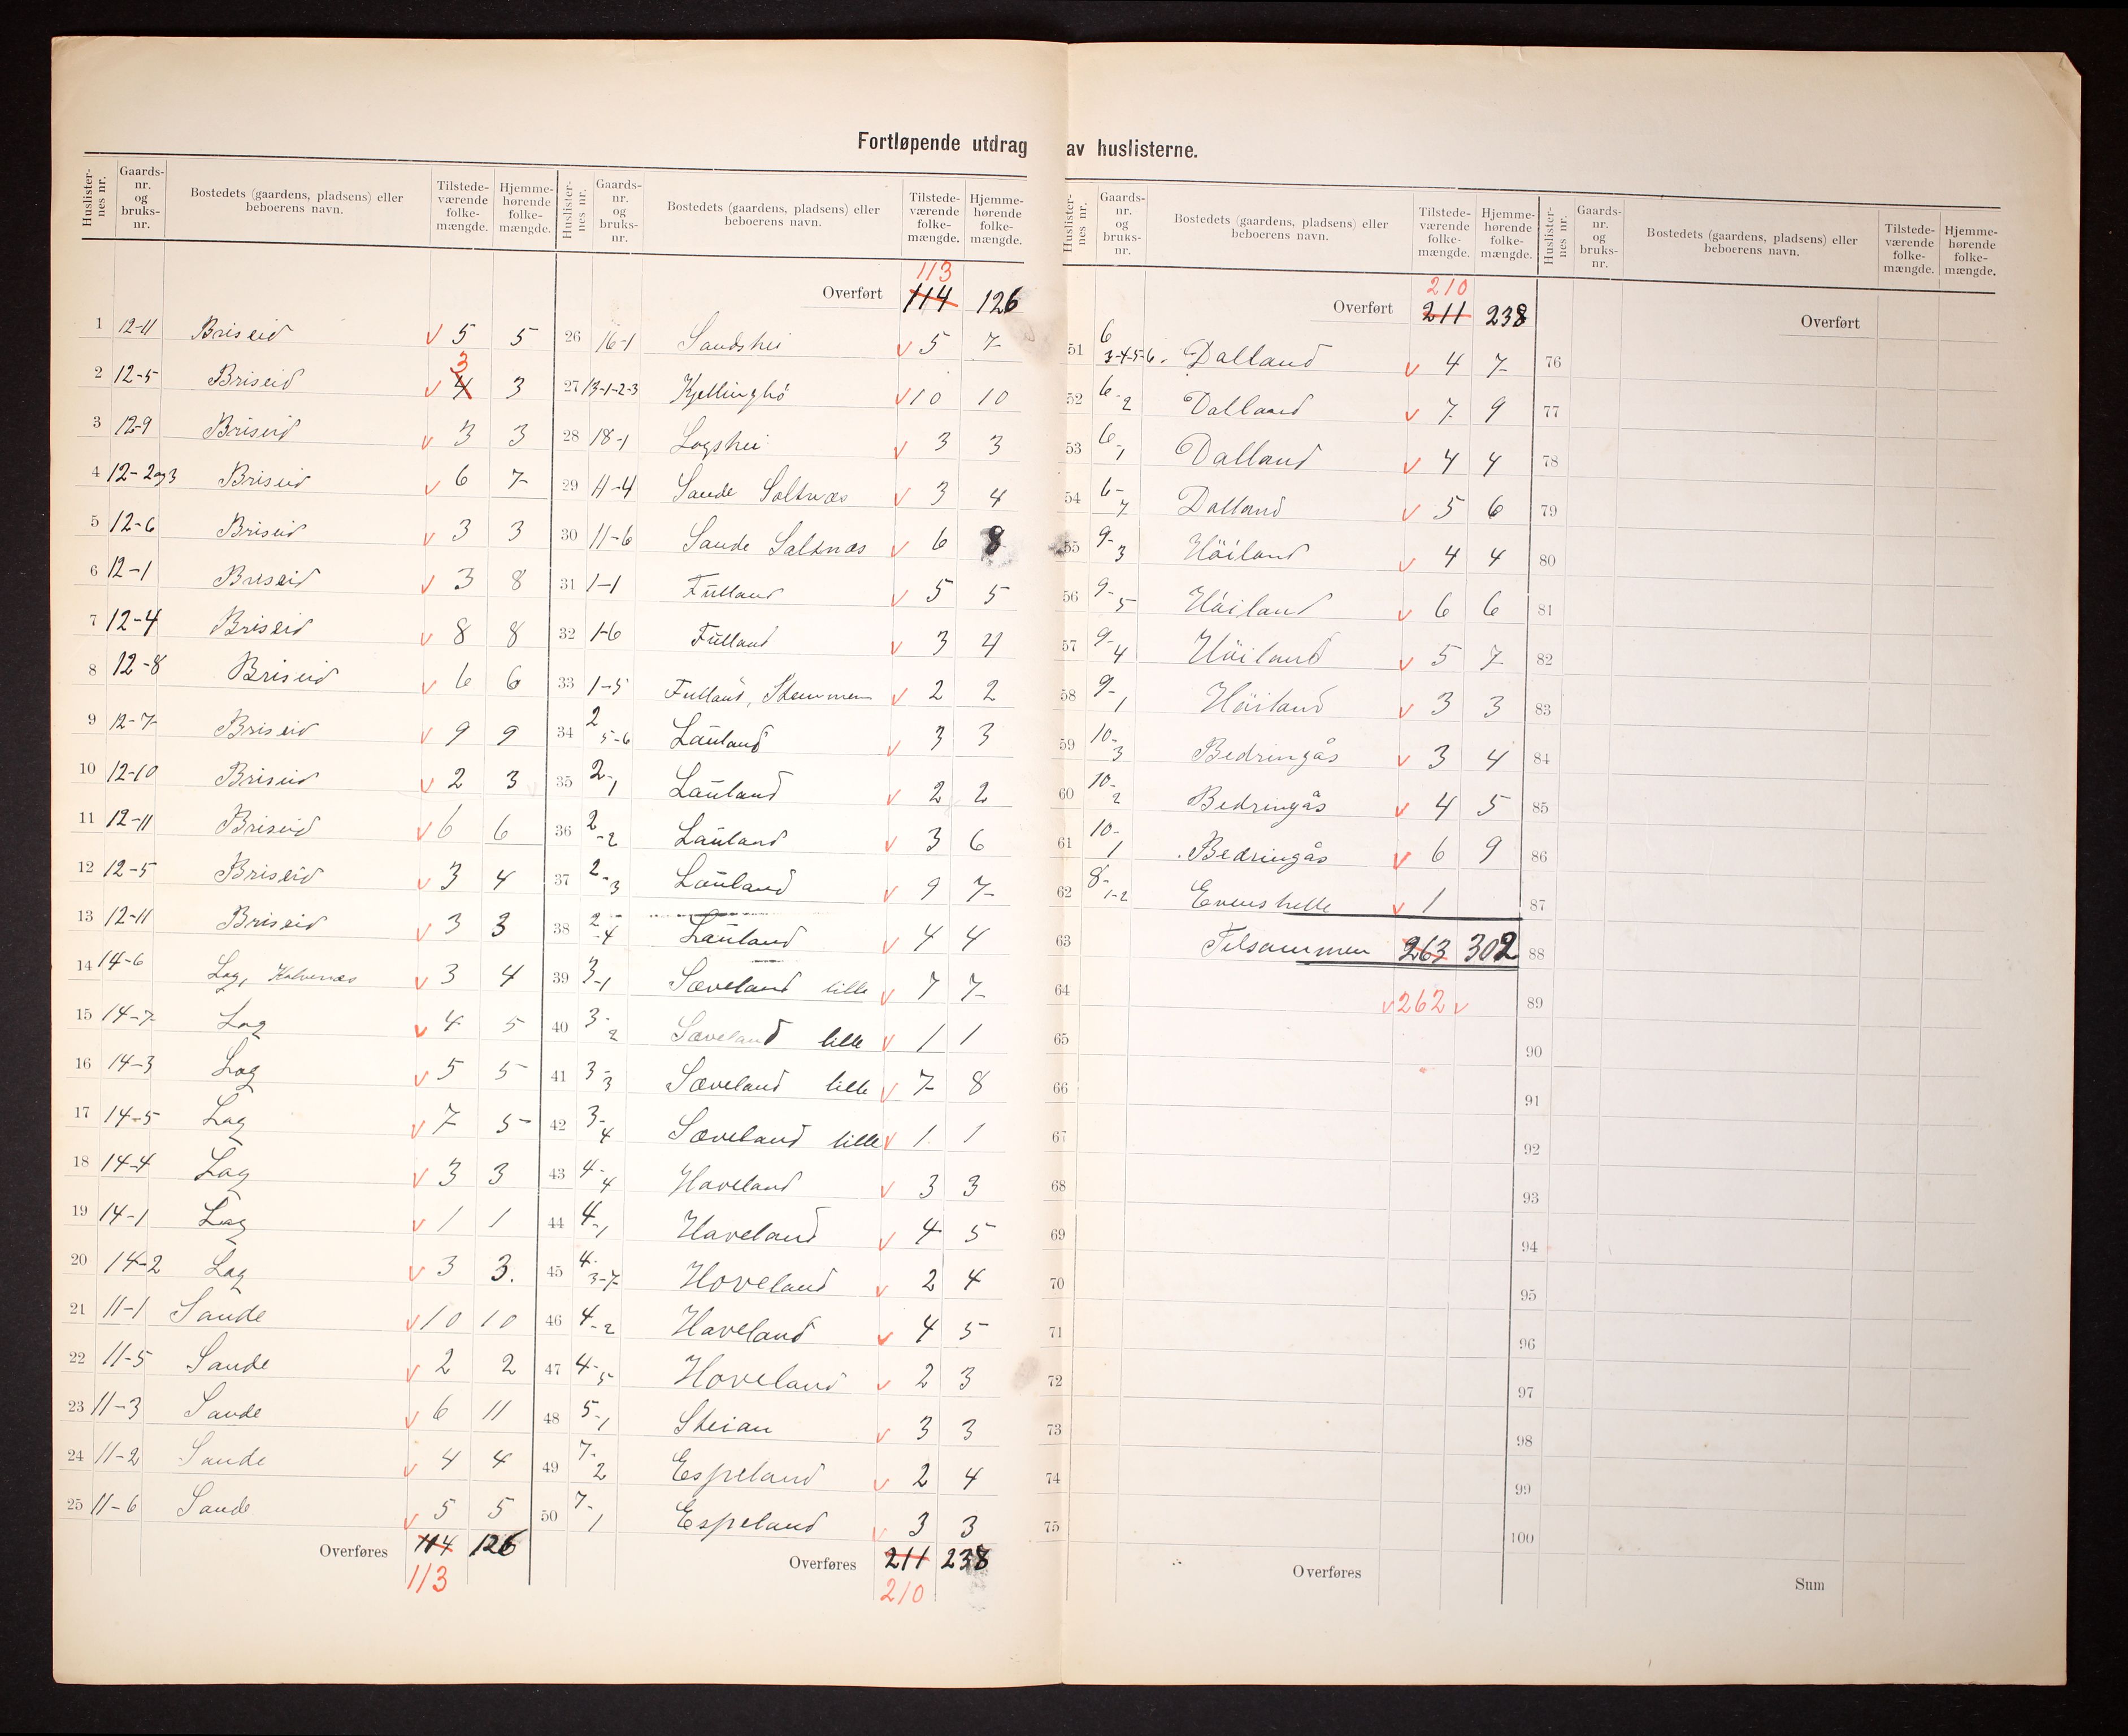 Fortløpende utdrag av huslisterne.
Huslisternes nr. Gaards-nr. og bruks-nr. Bostedets (gaardens, pladsens) eller beboerens navn. Tilstede-værende folke-mængde. Hjemme-hørende folke-mængde.
1 12-11 Briseid v 5 5
2 12-5 Briseid v 4 3 3
3 12-9 Briseid v 3 3
4 12-2og3 Briseid v 6 7
5 12-6 Briseid v 3 3
6 12-1 Briseid v 3 8
7 12-4 Briseid v 8 8
8 12-8 Briseid v 6 6
9 12-7 Briseid v 9 9
10 12-10 Briseid v 2 3
11 12-11 Briseid v 6 6
12 12-5 Briseid v 3 4
13 12-11 Briseid v 3 3
14 14-6 Lag, Kalvenæs v 3 4
15 14-7 Lag v 4 5
16 14-3 Lag v 5 5
17 14-5 Lag v 7 5
18 14-4 Lag v 3 3
19 14-1 Lag v 1 1
20 14-2 Lag v 3 3.
21 11-1 Sande v 10 10
22 11-5 Sande v 2 2
23 11-3 Sande v 6 11
24 11-2 Sande v 4 4
25 11-6 Sande v 5 5
Overføres 114 126
113
Huslisternes nr. Gaards-nr. og bruks-nr. Bostedets (gaardens, pladsens) eller beboerens navn. Tilstede-værende folke-mængde. Hjemme-hørende folke-mængde.
113
Overført 114 126
26 16-1 Sandshei v 5 7
27 13-1-2-3 Kjellinghö v 10 10
28 18-1 Lagshei v 3 3
29 11-4 Sande Saltnæs v 3 4
30 11-6 Sande Saltnæs v 6 8
31 1-1 Fülland v 5 5
32 1-6 Fülland v 3 4
33 1-5 Fulland, Stemmen v 2 2
34 2 5-6 Lauland v 3 3
35 2-1 Lauland v 2 2
36 2-2 Lauland v 3 6
37 2-3 Lauland v 9 7
38 2-4 Lauland v 4 4
39 3-1 Sæveland lille v 7 7
40 3-2 Sæveland lille v 1 1
41 3-3 Sæveland lille v 7 8
42 3-4 Sæveland lille v 1 1
43 4-4 Haveland v 3 3
44 4-1 Haveland v 4 5
45 4-3-7 Hoveland v 2 4
46 4-2 Haveland v 4 5
47 4-5 Hoveland v 2 3
48 5-1 Steian v 3 3
49 7-2 Espeland v 2 4
50 7-1 Espeland v 3 3
Overføres 211 238
210
Huslisternes nr. Gaards-nr. og bruks-nr. Bostedets (gaardens, pladsens) eller beboerens navn. Tilstede-værende folke-mængde. Hjemme-hørende folke-mængde.
210
Overført 211 238
51 6 3-4-5-6. Dalland v 4 7
52 6-2 Dalland v 7 9
53 6-1 Dalland v 4 4
54 6-7 Dalland v 5 6
55 9-3 Höiland v 4 4
56 9-5 Höiland v 6 6
57 9-4 Höiland v 5 7
58 9-1 Höiland v 3 3
59 10-3 Bedringås v 3 4
60 10-2 Bedringås v 4 5
61 10-1 Bedringås v 6 9
62 8-1-2 Evenshelle v 1
63 Tilsammen 263 302
64 v 262 v
65
66
67
68
69
70
71
72
73
74
75
Overføres
Huslisternes nr. Gaards-nr. og bruks-nr. Bostedets (gaardens, pladsens) eller beboerens navn. Tilstede-værende folke-mængde. Hjemme-hørende folke-mængde.
Overført
76
77
78
79
80
81
82
83
84
85
86
87
88
89
90
91
92
93
94
95
96
97
98
99
100
Sum